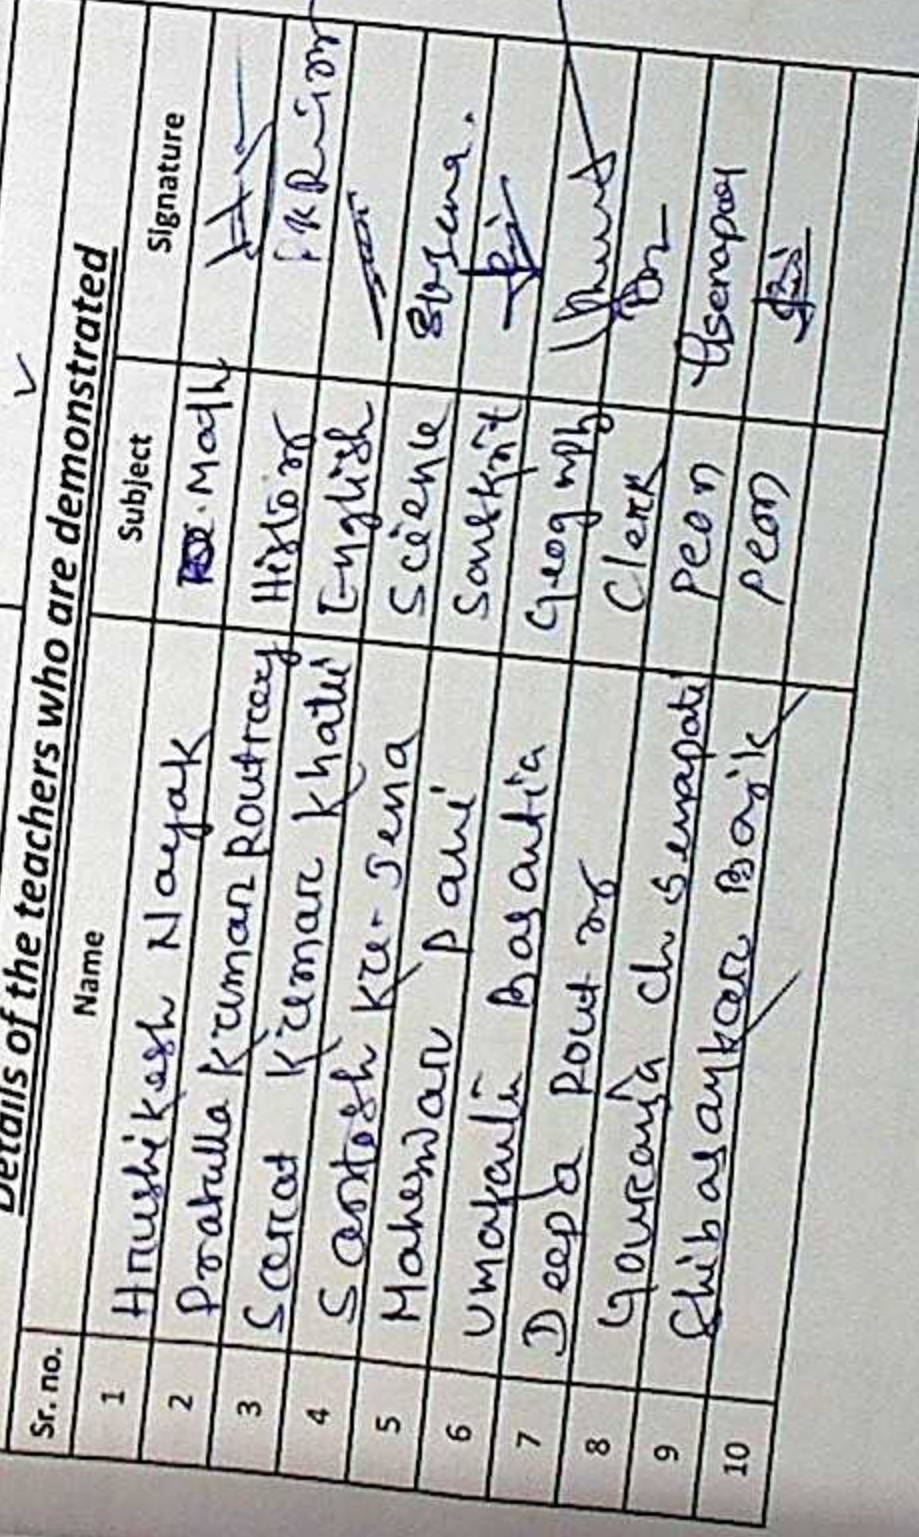 Details of the teachers who are demonstrated
Sr. no. Name Subject Signature
1 Hrushikesh Nayak Math
2 Prafulla Kumar Routray History
3 Sarat Kumar Khatei English
4 Santosh Ku-Jena Science
5 Maheswar Pani Sanskrit
6 Umakanta Basantia Geography
7 Deepa Rout Clerk
8 Gouranga ch Senapati Peon Gsenapati
9 Shibasankar Barik Peon
10